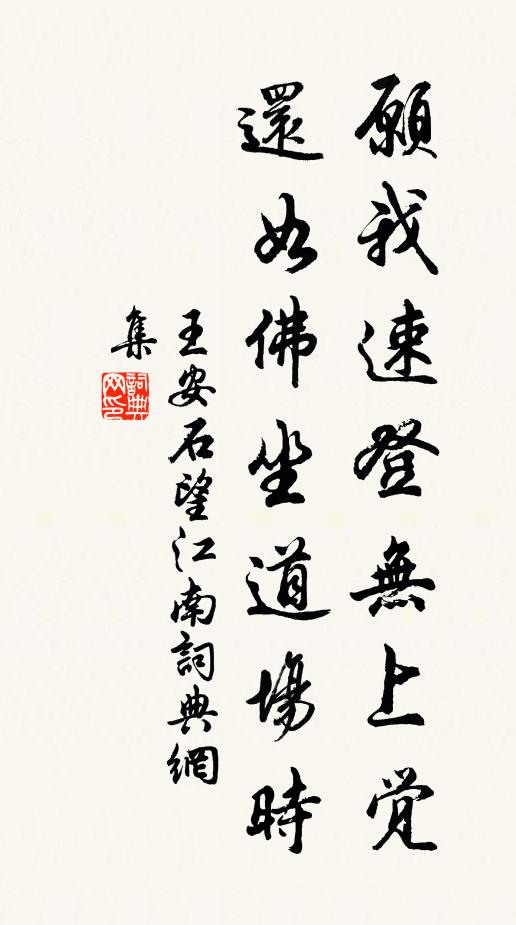 願我速登無上觉
還如佛坐道場時
王安石望江南詞典網
集
詞典
网印